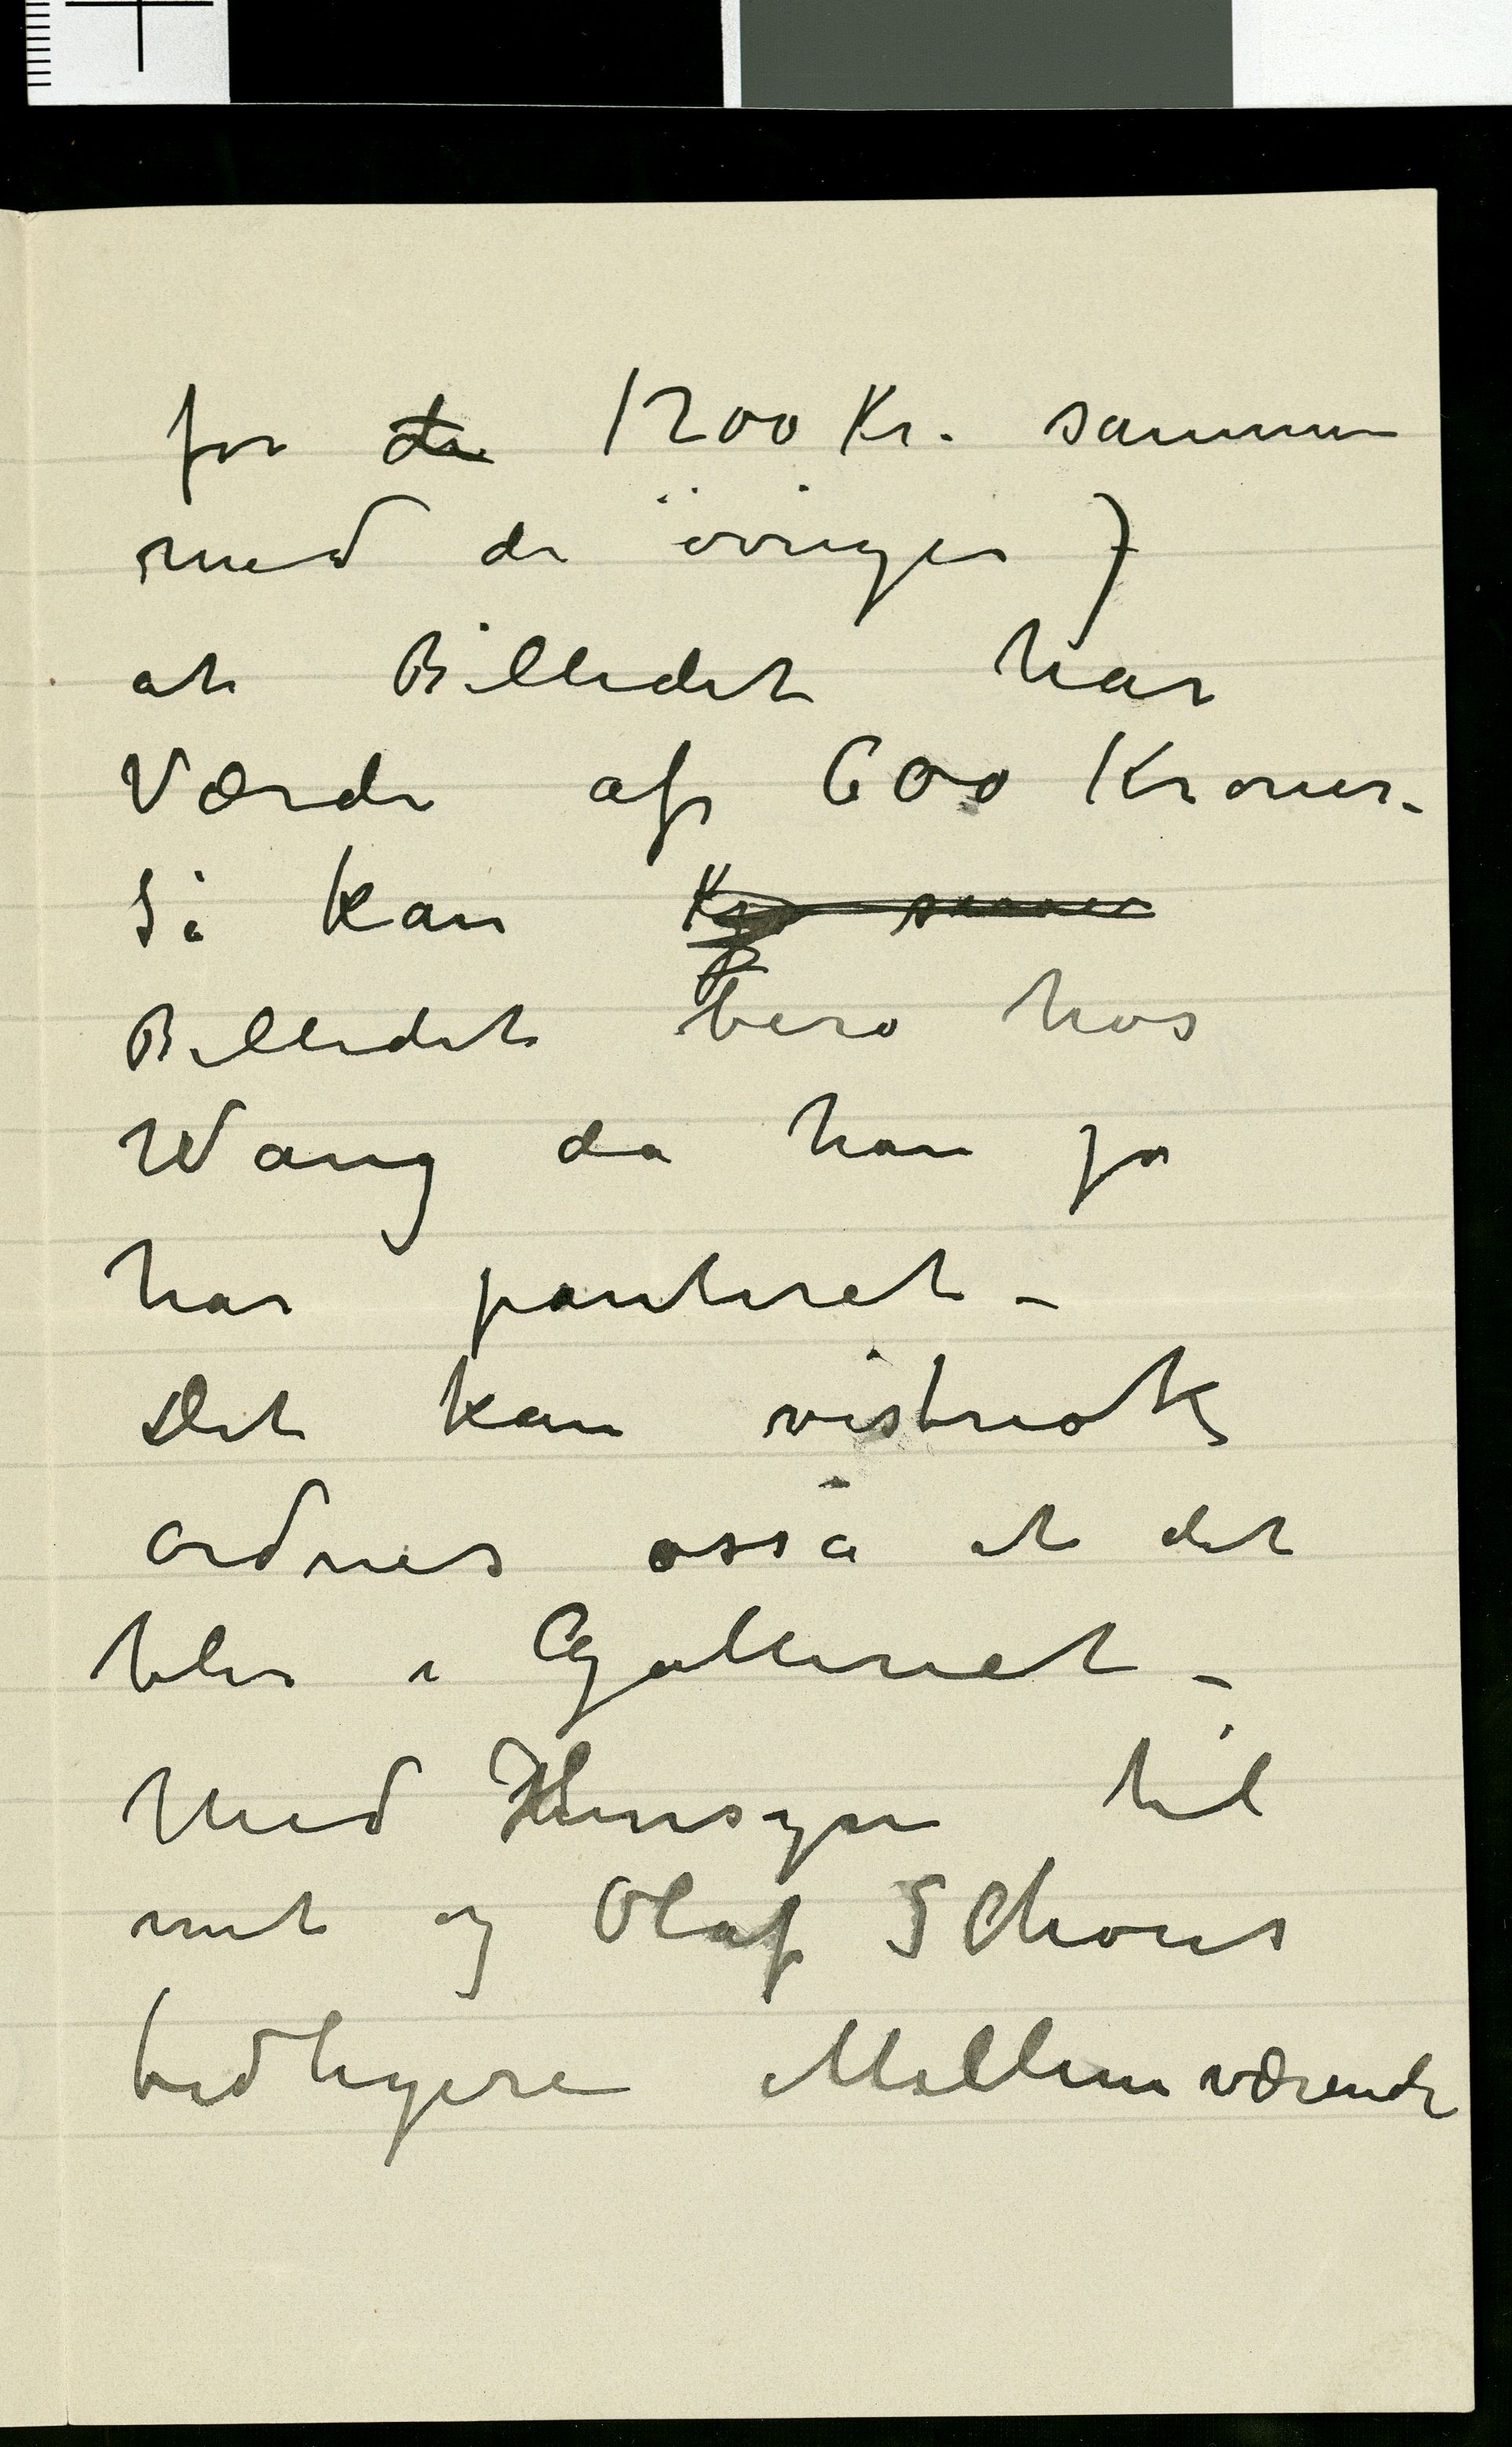 for de 1200 Kr. sammen
med de øvriger )
at Billedet har
Værdi af 600 Kroner.
Så kan
Billedet bero hos
Wang da han jo
har panteret –
Det kan vistnok
ordnes osså at det
blir i Galleriet –
Med Hensyn til
mit og Olaf SChous
tidligere Mellemværende